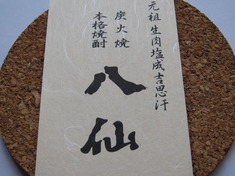 元祖生肉塩成吉思汗
炭火焼
本格焼酎
八仙